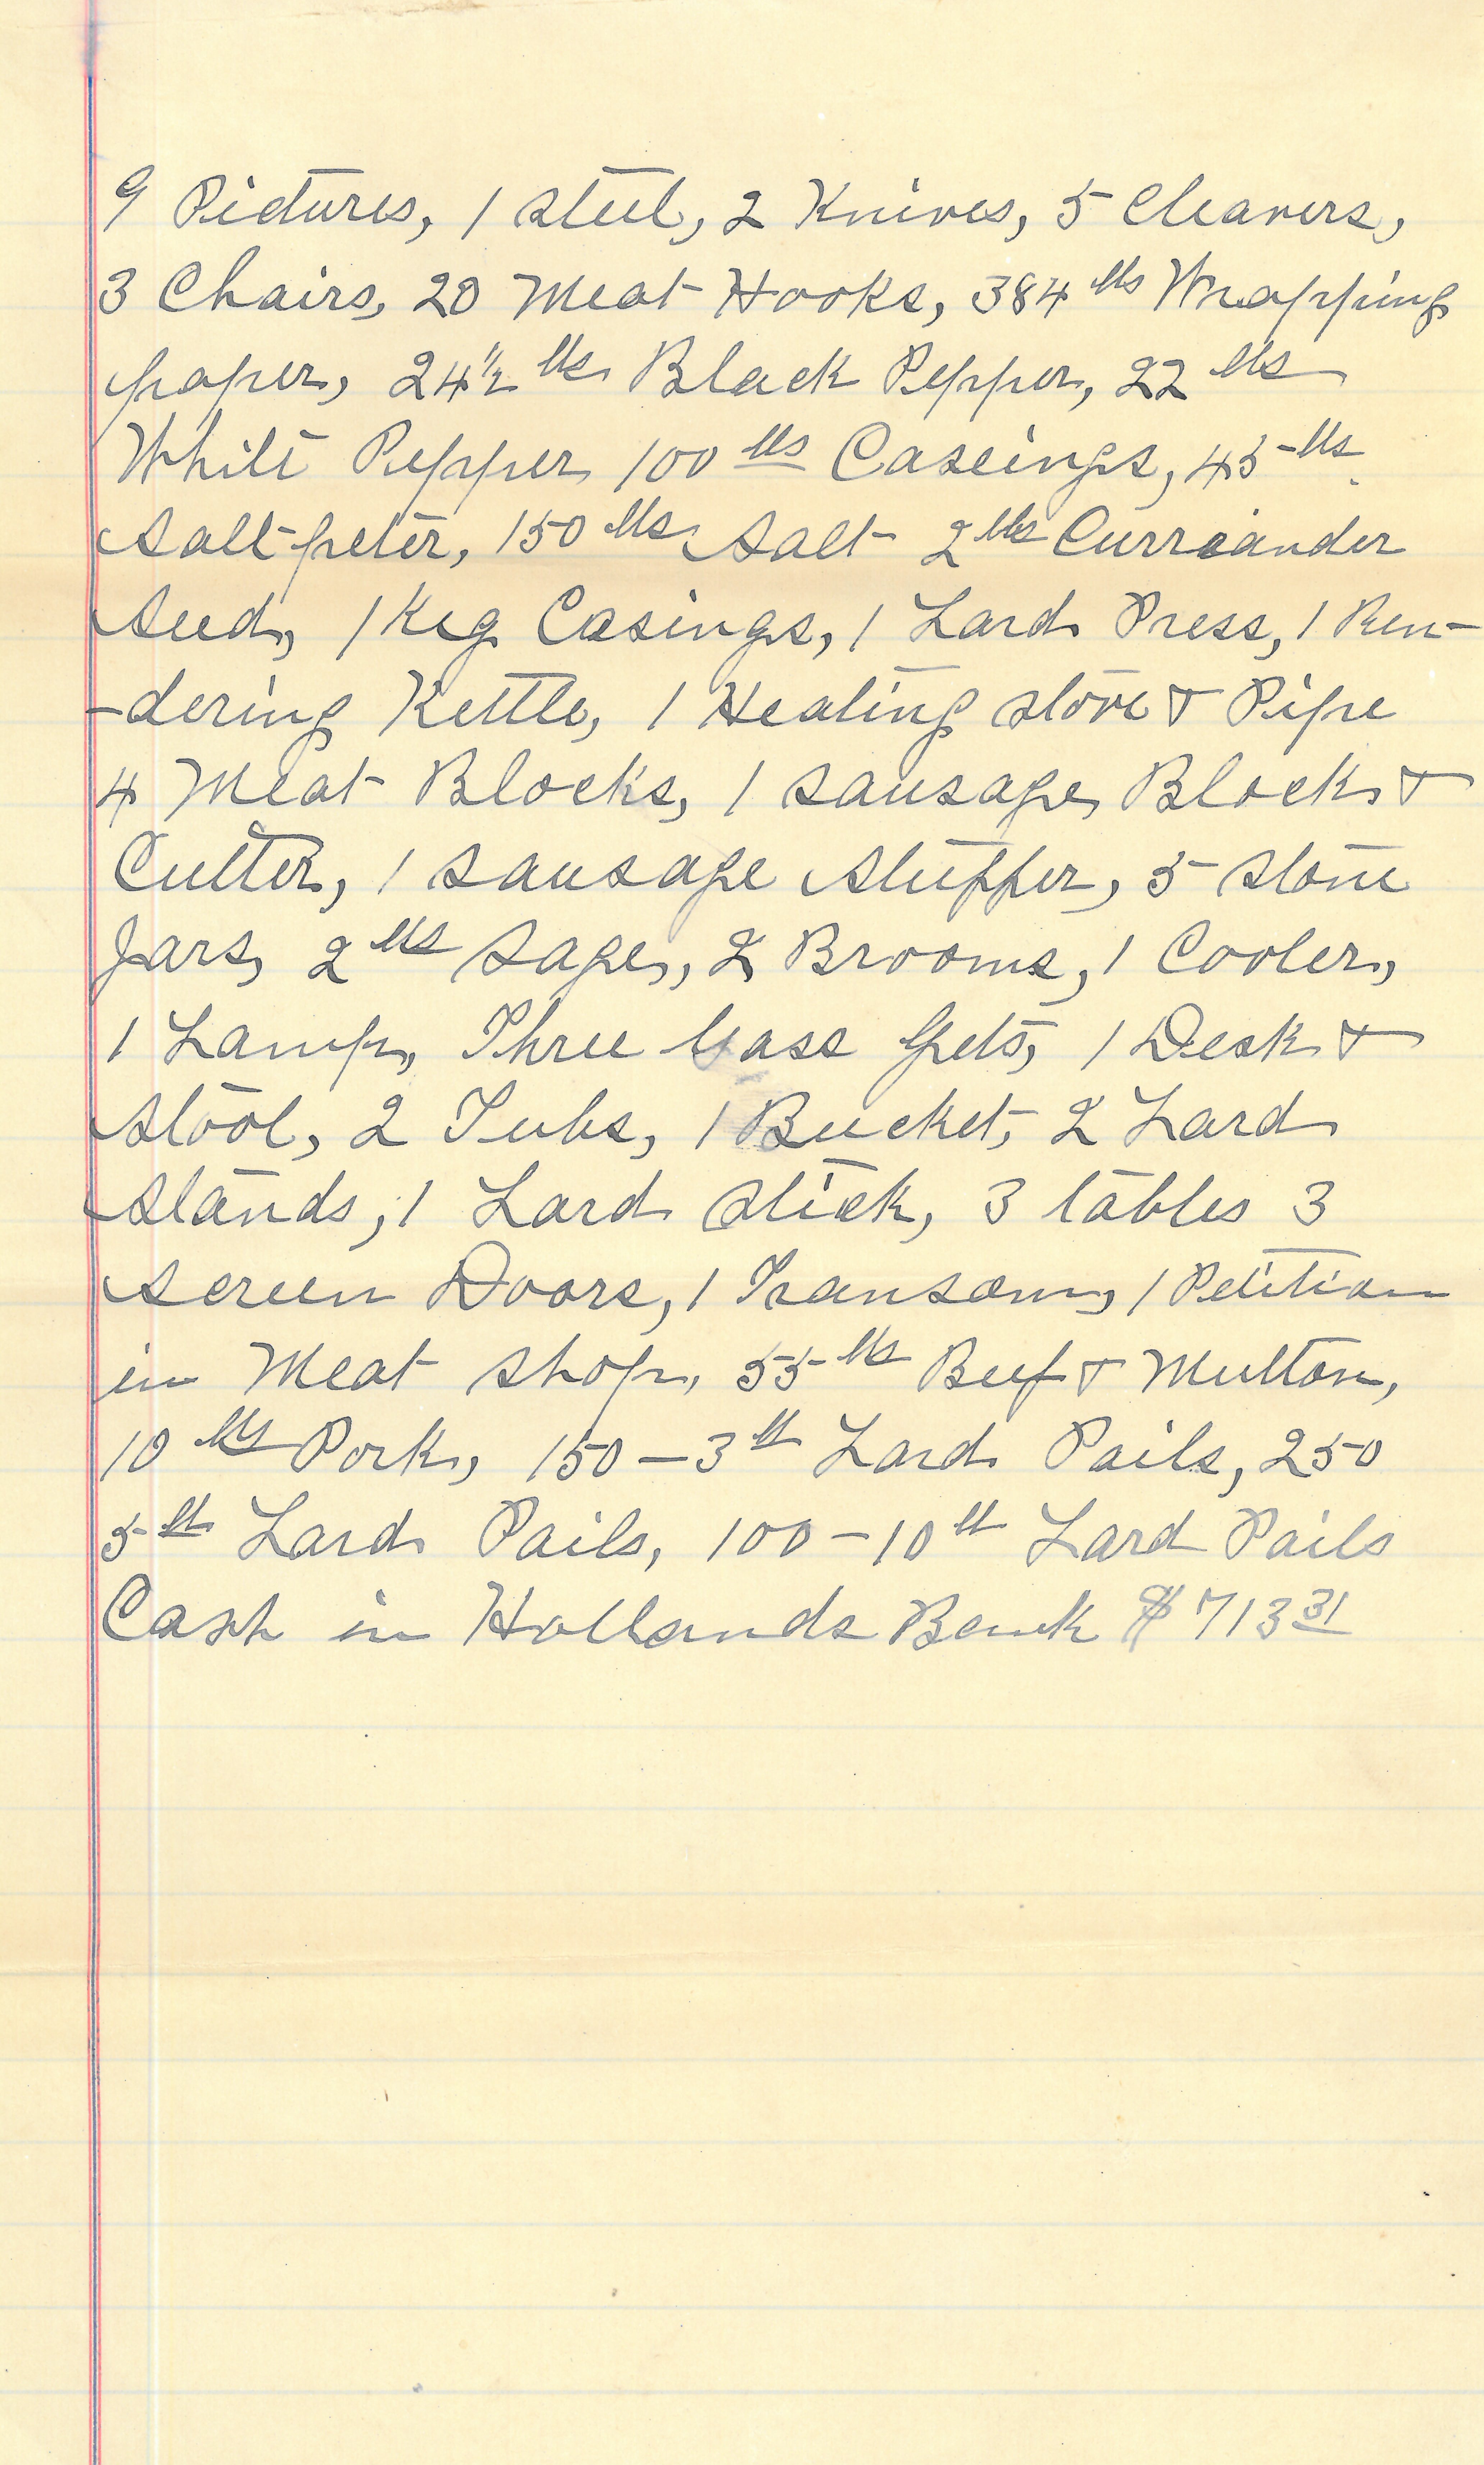 9 Pictures, 1 steel, 2 Knives, 5 Cleavers,
3 Chairs, 20 Meat Hooks, 384 lbs Wrapping
paper, 24 1/2 lbs Black Pepper, 22 lbs
White Pepper 100 lbs Caseings, 45 lbs
Saltpeter, 150 lbs Salt 2 lbs Curriander
Seed, 1 Keg Casings, 1 Lard Press, 1 Ren-
-dering Kettle, 1 Heating stove & Pipe
4 Meat Blocks, 1 Sausage Block &
Cutter, 1 Sausage Stuffer, 5 Stone
Jars, 2 lbs Sage, 2 Brooms, 1 Cooler,
1 Lamp, Three Gass Jets, 1 Desk &
Stool, 2 Tubs, 1 Bucket, 2 Lard
Stands, 1 Lard Stick, 3 tables 3
Screen Doors, 1 Transom, 1 Petition
in Meat Shop, 55 lbs Beef & Mutton,
10 lbs Pork, 150 — 3 lb Lard Pails, 250
5 lb Lard Pails, 100 — 10 lb Lard Pails
Cash in Hollands Bank $ 713 31